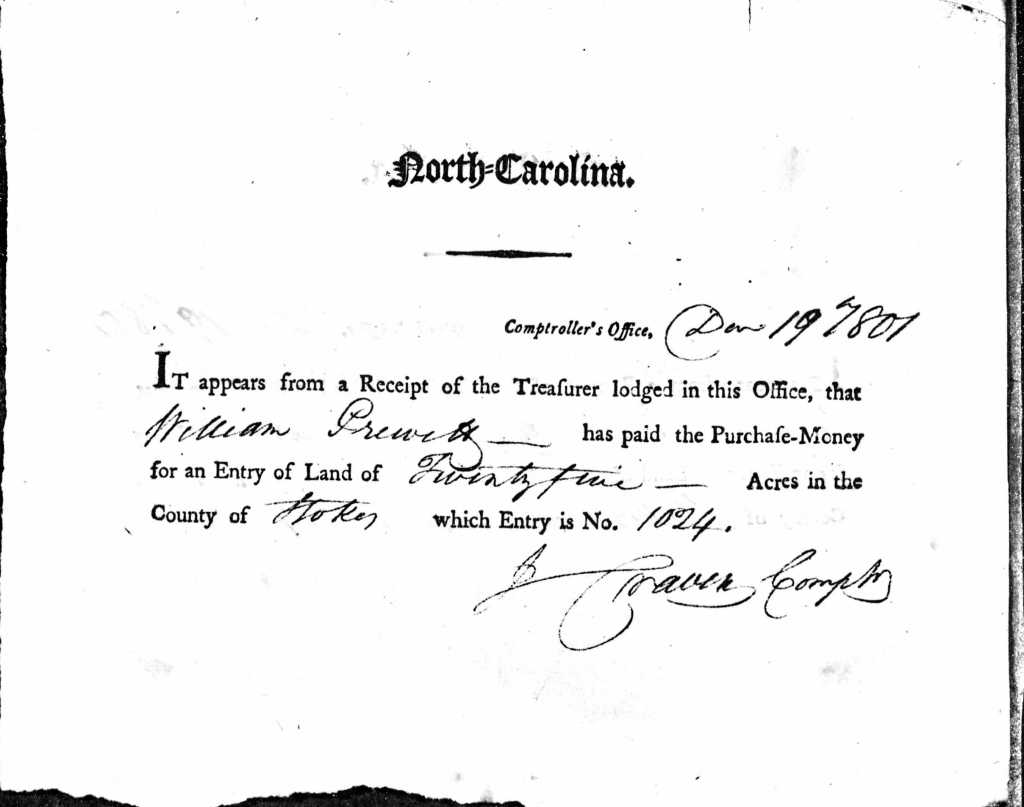 North-Carolina.
Comptroller's Office, Decr 19 1801
IT appears from a Receipt of the Treaſurer lodged in this Office, that
William Prewitt — has paid the Purchaſe-Money
for an Entry of Land of Twenty five — Acres in the
County of Stokes which Entry is No. 1024.
J Craven Comptr